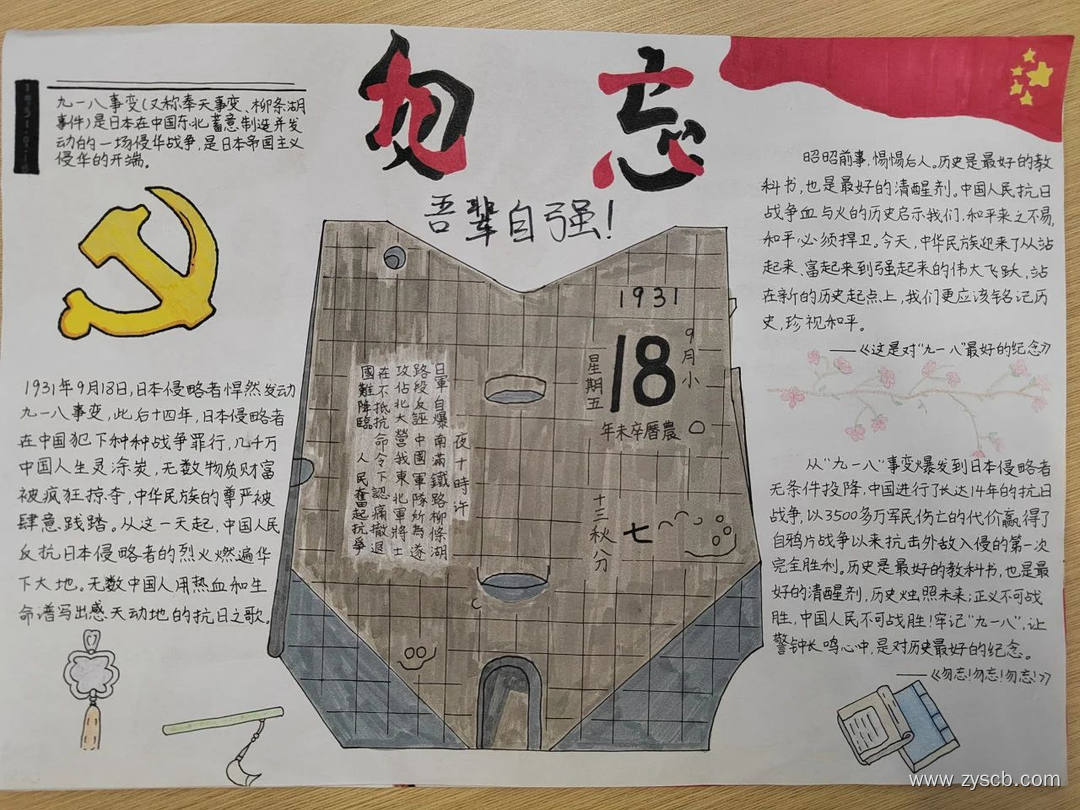 勿忘
吾辈自强!
九一八事变(又称奉天事变、柳条湖
事件)是日本在中国东北蓄意制造并发
动的一场侵华战争,是日本帝国主义
侵华的开端。
1931年9月18日,日本侵略者悍然发动
九一八事变,此后十四年,日本侵略者
在中国犯下种种战争罪行,几千万
中国人生灵涂炭,无数物质财富
被疯狂掠夺,中华民族的尊严被
肆意践踏。从这一天起,中国人民
反抗日本侵略者的烈火燃遍华
下大地。无数中国人用热血和生
命谱写出感天动地的抗日之歌。
1931
9月小
18
星期五
年未卒曆農
十三秋分
七
夜十時许
日軍自爆南滿鐵路柳條湖
路段反誣中國軍隊所為遂
攻佔北大營我東北軍將士
在不抵抗命令下認痛撤退
國難降臨 人民奮起抗爭
昭昭前事,惕惕后人。历史是最好的教
科书,也是最好的清醒剂。中国人民抗日
战争血与火的历史启示我们,和平来之不易,
和平必须捍卫。今天,中华民族迎来了从站
起来、富起来到强起来的伟大飞跃,站
在新的历史起点上,我们更应该铭记历
史,珍视和平。
——《这是对“九一八”最好的纪念》
从“九一八”事变爆发到日本侵略者
无条件投降,中国进行了长达14年的抗日
战争,以3500多万军民伤亡的代价赢得了
自鸦片战争以来抗击外敌入侵的第一次
完全胜利。历史是最好的教科书,也是最
好的清醒剂,历史烛照未来;正义不可战
胜,中国人民不可战胜!牢记“九一八”,让
警钟长鸣心中,是对历史最好的纪念。
——《勿忘!勿忘!勿忘!》
www.zyscb.com